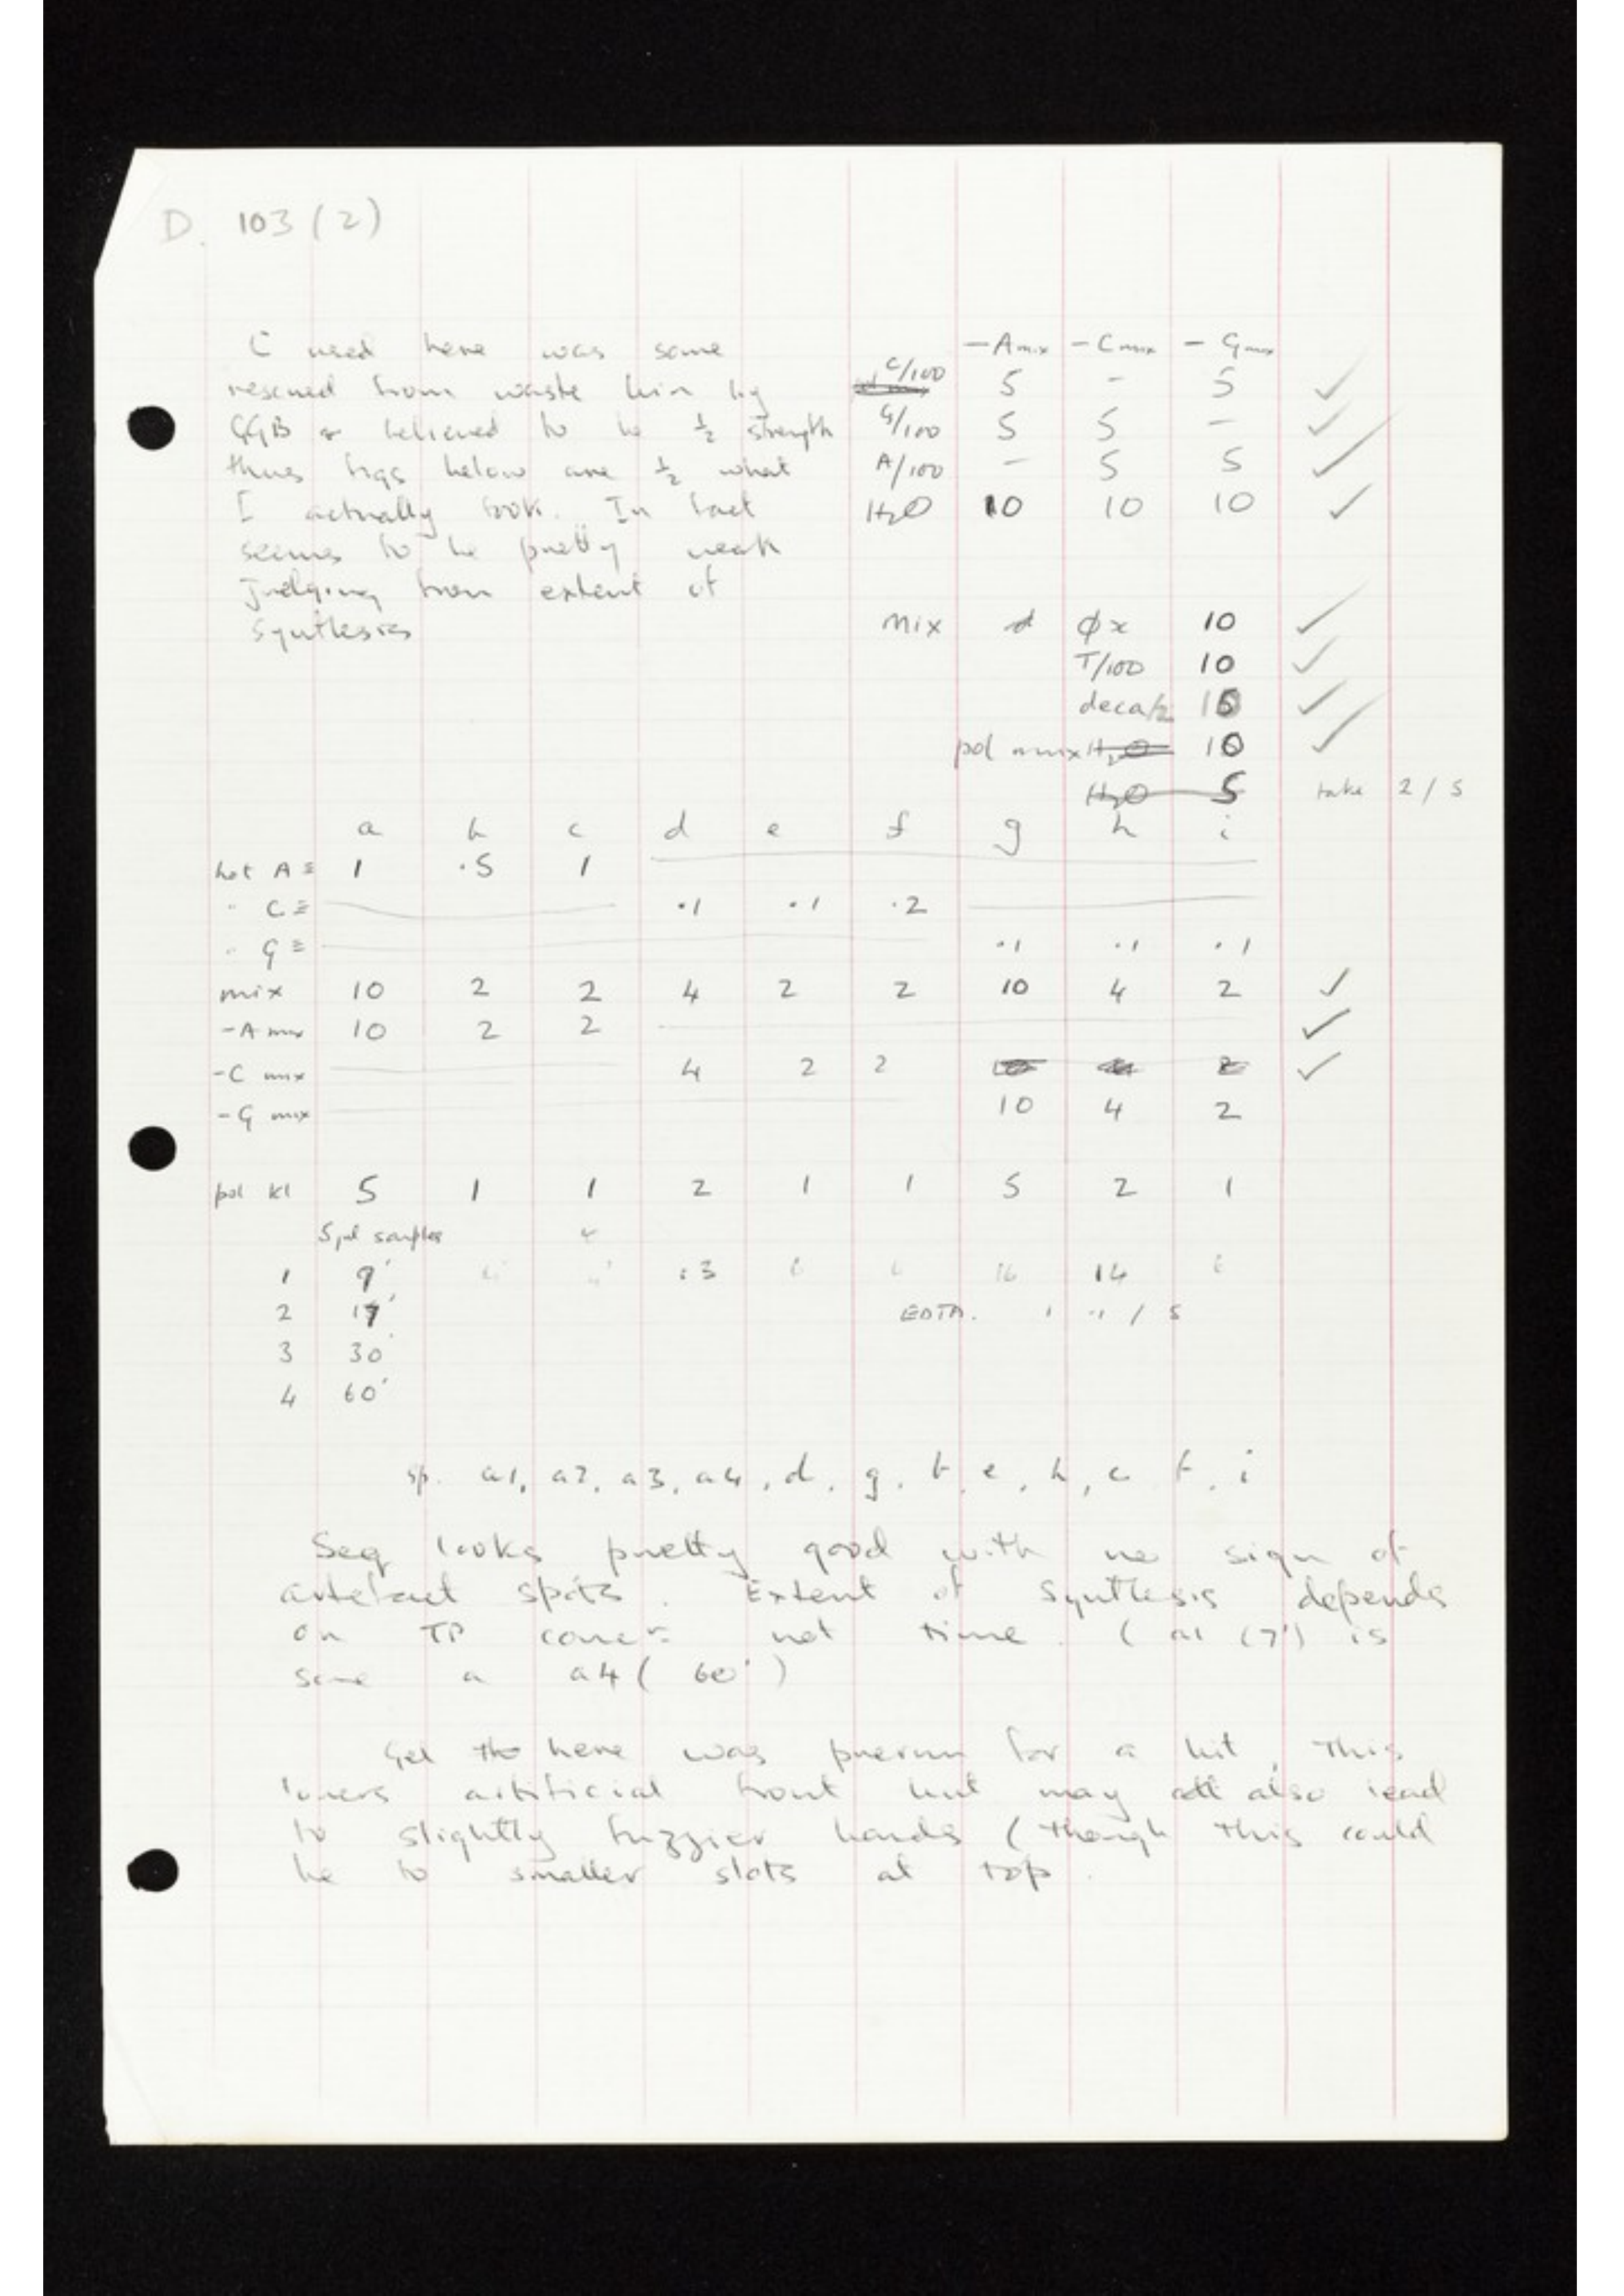 D. 103 (2)
-Amix -Cmix - Gmix
C used here was some
rescued from waste bin by C/100 5 - 5 ✓
GGB & believed to be ½ strength G/100 5 5 - ✓
thus figs below are ½ what A/100 - 5 5 ✓
I actually took. In fact H2O 10 10 10 ✓
seems to be pretty weak
Judging from extent of
Synthesis
mix φx 10 ✓
T/100 10 ✓
deca/2 ✓
pol mix H2O 10 ✓
H2O 5 take 2/5
a b c d e f g h i
hot A ≡ 1 .5 1
" C ≡ .1 .1 .2
" G ≡ .1 .1 .1
mix 10 2 2 4 2 2 10 4 2 ✓
-A mix 10 2 2 ✓
-C mix 4 2 2 ✓
-G mix 10 4 2
pol Kl 5 1 1 2 1 1 5 2 1
5µl samples
1 9' 14
2 17' EDTA. 1 / 5
3 30'
4 60'
sp. a1, a2, a3, a4, d, g, b, e, h, c, f, i
Seq looks pretty good with no sign of
artefact spots. Extent of Synthesis depends
on TP concn not time. (a1 (7') is
same a a4 (60')
Gel the here was prerun for a bit. This
lowers artificial front but may also lead
to slightly fuzzier bands (though this could
be to smaller slots at top.